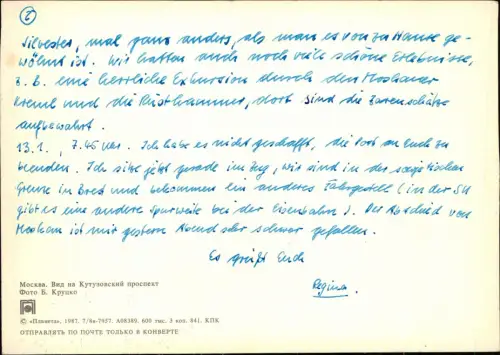 2
Silvester, mal ganz anders, als man es von zu Hause ge-
wöhnt ist. Wir hatten auch noch viele schöne Erlebnisse,
z. B. eine herrliche Exkursion durch den Moskauer
Kreml und die Rüstkammer, dort sind die Zarenschätze
aufbewahrt.
13.1., 7.45 Uhr. Ich habe es nicht geschafft, die Post an Euch zu
beenden. Ich sitze jetzt gerade im Zug, wir sind in der sowjetischen
Grenze in Brest und bekommen ein anderes Fahrgestell (in der SU
gibt es eine andere Spurweite bei der Eisenbahn). Der Abschied von
Moskau ist mir gestern Abend sehr schwer gefallen.
Es grüßt Euch
Regina.
Москва. Вид на Кутузовский проспект
Фото Б. Круцко
© «Планета», 1987. 7/8н-7927. А08380. 600 тыс. 3 коп. 841. КПК
ОТПРАВЛЯТЬ ПО ПОЧТЕ ТОЛЬКО В КОНВЕРТЕ